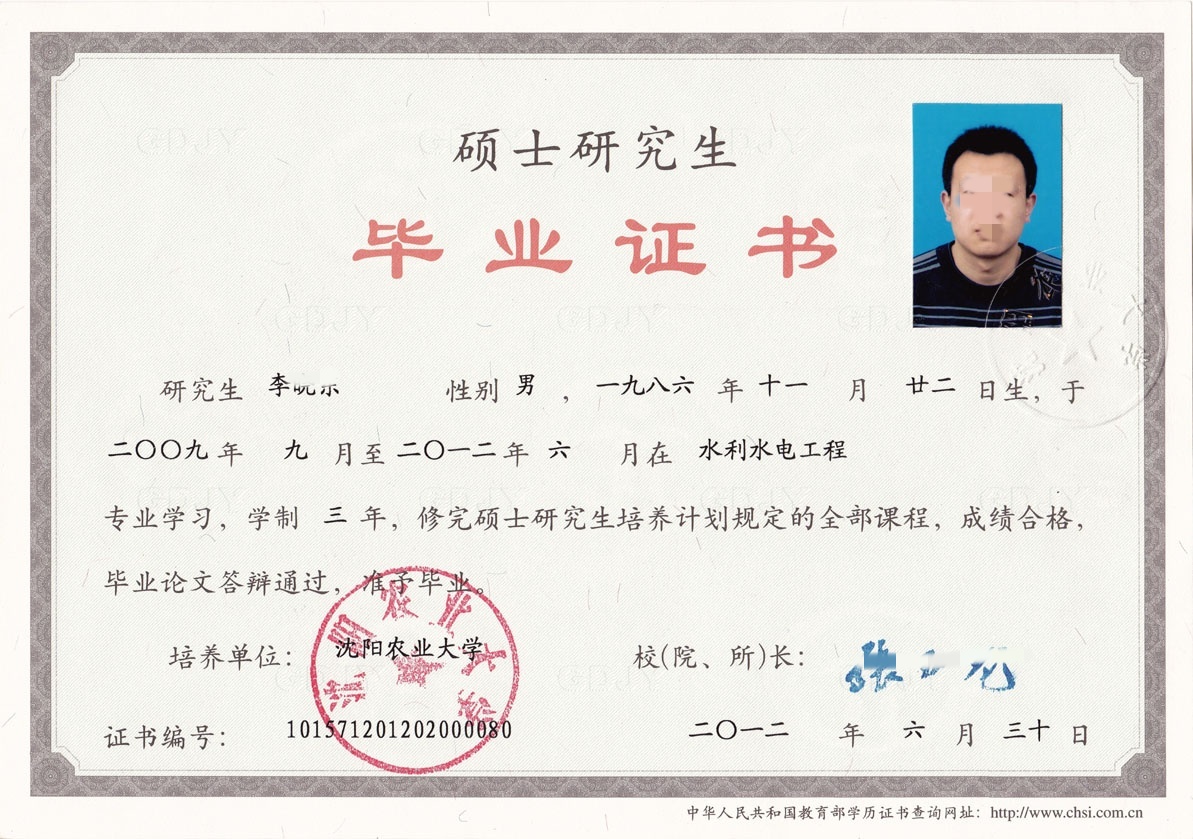 硕士研究生
毕业证书
研究生 李晓 性别 男 ， 一九八六 年 十一 月 廿二 日生，于
二〇〇九 年 九 月至 二〇一二 年 六 月在 水利水电工程
专业学习，学制 三 年，修完硕士研究生培养计划规定的全部课程，成绩合格，
毕业论文答辩通过，准予毕业。
培养单位： 沈阳农业大学 校(院、所)长： 张
沈阳农业大学
证书编号： 101571201202000080 二〇一二 年 六 月 三十 日
中华人民共和国教育部学历证书查询网址：http://www.chsi.com.cn